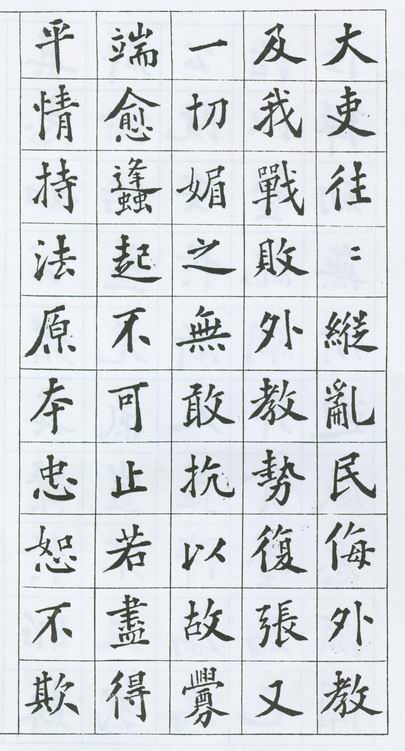 大吏往〻縱亂民侮外教
及我戰敗外教勢復張又
一切媚之無敢抗以故釁
端愈蠭起不可止若盡得
平情持法原本忠恕不欺